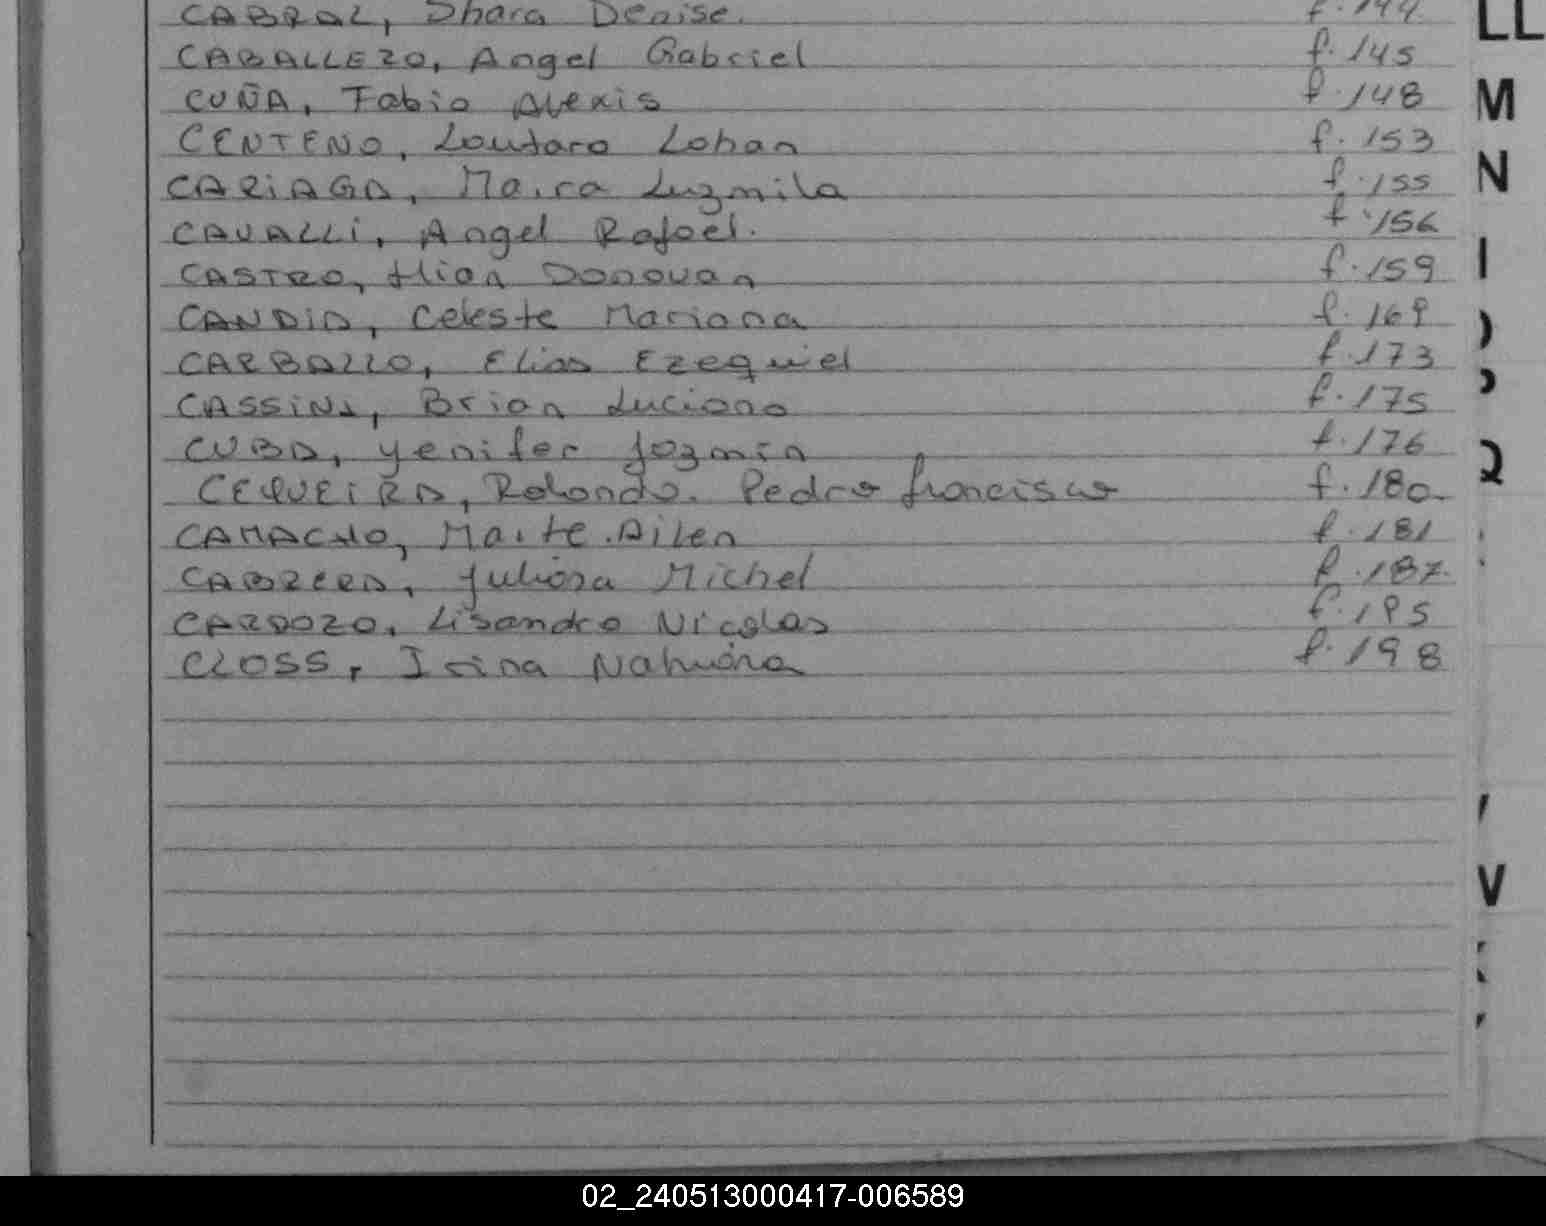 CABRAL, Shara Denise. f. 144
CABALLERO, Angel Gabriel f. 145
CUÑA, Fabio Alexis f. 148
CENTENO, Lautaro Lohan f. 153
CARIAGA, Maira Luzmila f. 155
CAVALLI, Angel Rafael. f. 156
CASTRO, Hian Donovan f. 159
CANDIA, Celeste Mariana f. 169
CARBALLO, Elias Ezequiel f. 173
CASSINI, Brian Luciano f. 175
CUBA, Yenifer Jazmin f. 176
CEQUEIRA, Rolando. Pedro Francisco f. 180
CAMACHO, Maite. Ailen f. 181
CABRERA, Juliana Michel f. 187.
CARDOZO, Lisandro Nicolas f. 195
CLOSS, Irina Nahiara f. 198
LL
M
N
Q
02_240513000417-006589